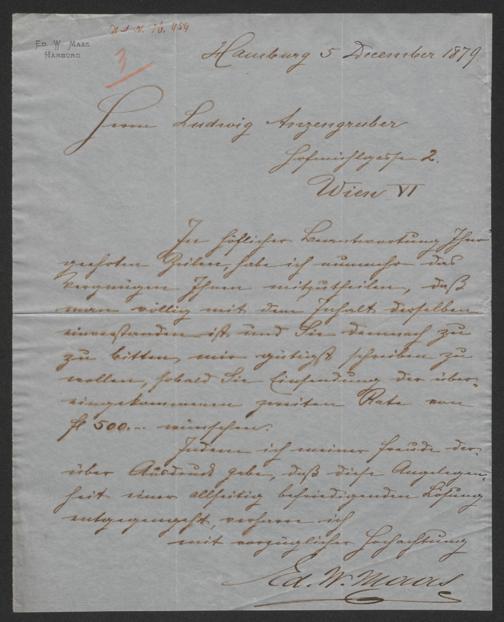 Ed. W. Maas
Hamburg
3
Hamburg 5 December 1879
Herrn Ludwig Anzengruber
Hofmühlgasse 2.
Wien VI
In höflicher Beantwortung Ihrer
geehrten Zeilen habe ich nunmehr das
Vergnügen Ihnen mitzutheilen, daß
man völlig mit dem Inhalt derselben
einverstanden ist und Sie demnach zu
zu bitten, mir gütigst schreiben zu
wollen, sobald Sie Einsendung der über-
eingekommenen zweiten Rate von
500.-- wünschen.
Indem ich meiner Freude dar-
über Ausdruck gebe, daß diese Angelegen-
heit einer allseitig befriedigenden Lösung
entgegengeht, verharre ich
mit vorzüglicher Hochachtung
Ed. W. Maas